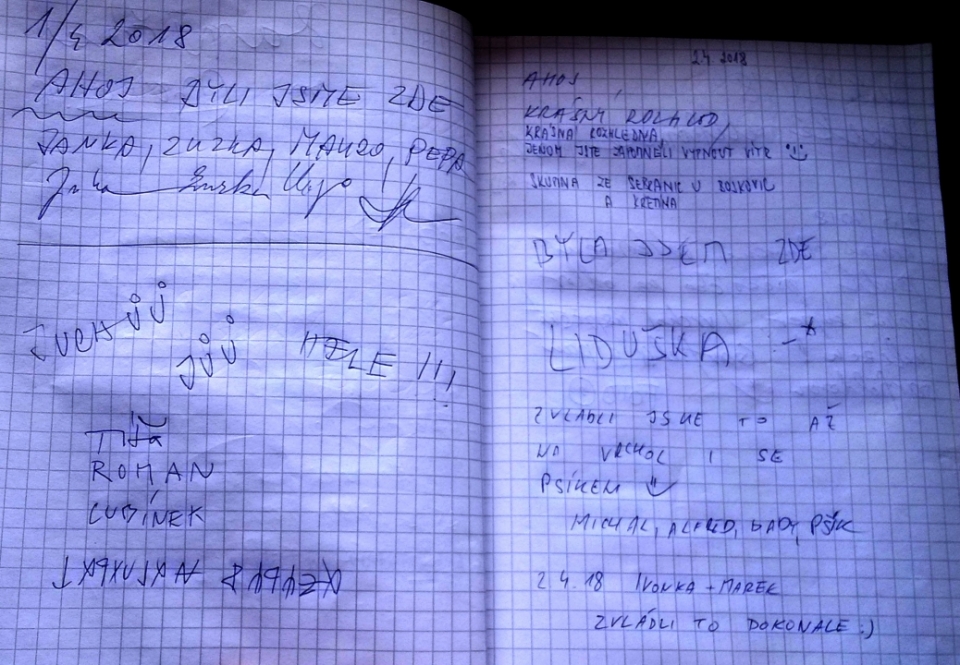 1/4 2018
AHOJ BYLI JSME ZDE
JANKA, ZUZKA, PEPA
JUCHŮŮ
JŮŮ HELE !!!
ROMAN
LUBÍNEK
2.4. 2018
AHOJ
KRÁSNÝ ROZHLED,
KRÁSNÁ ROZHLEDNA,
JENOM JSTE ZAPOMNĚLI VYPNOUT VÍTR
SKUPINA ZE ŠEBRANIC U BOSKOVIC
A KŘETÍNA
BYLA JSEM ZDE
LIDUŠKA
ZVLÁDLI JSME TO AŽ
NA VRCHOL I SE
PSÍKEM
MICHAL, ALFRED,
2.4.18 IVONKA + MAREK
ZVLÁDLI TO DOKONALE :)